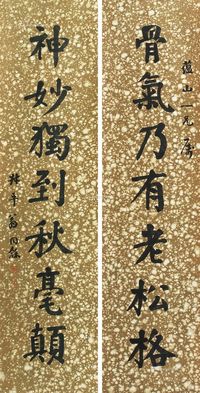 蘊山一兄屬
骨氣乃有老松格
神妙獨到秋毫顛